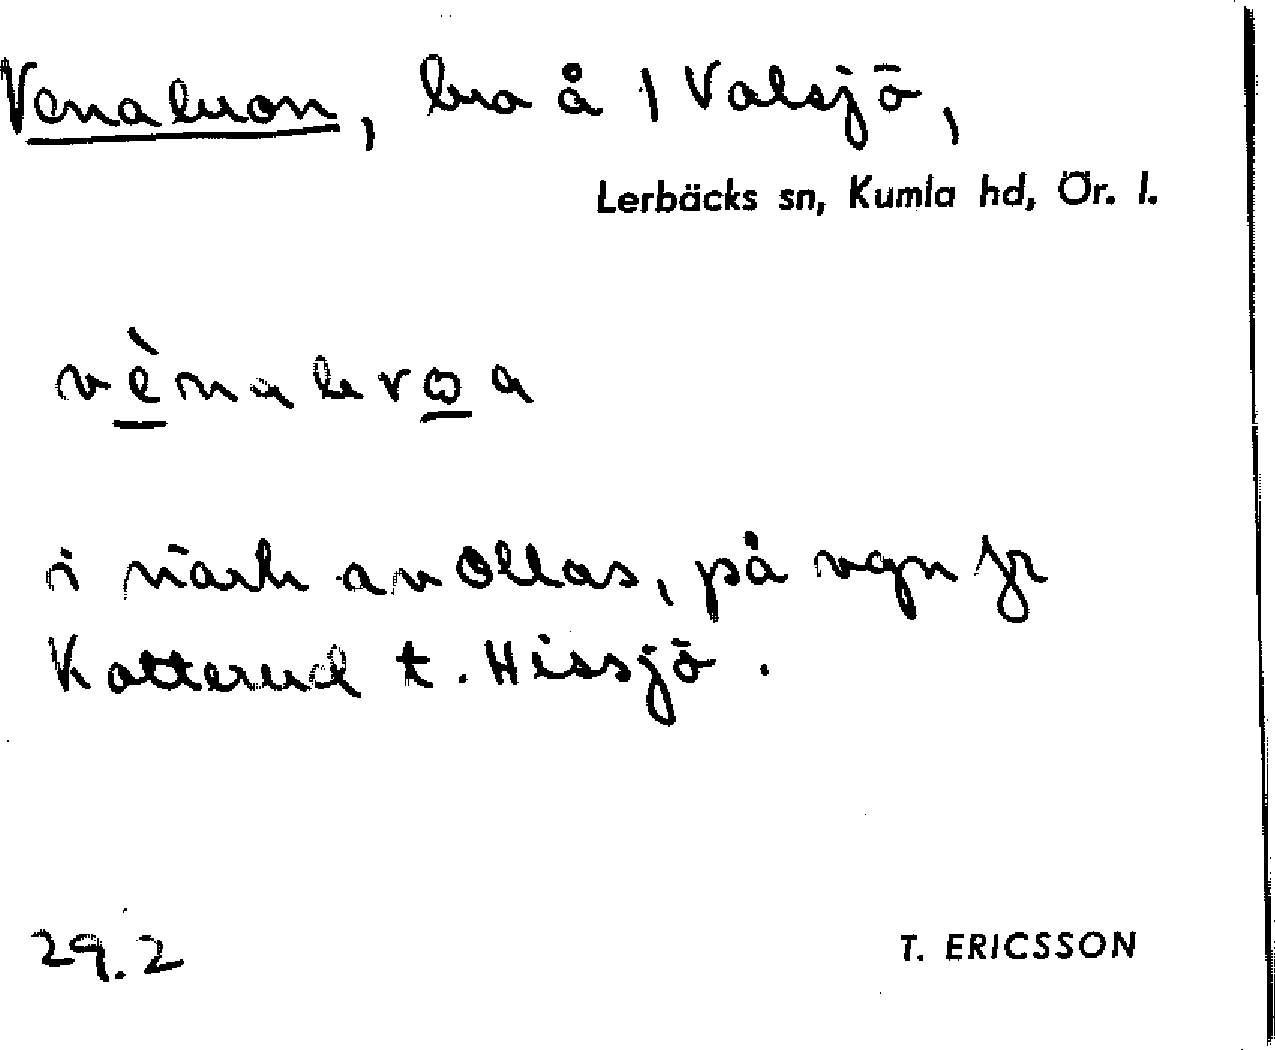 Venabron, bro å 1 Valsjö,
Lerbäcks sn, Kumla hd, Ör. l.
vènabroa
i närh av Ollas, på vgn fr
Katterud t. Hissjö.
29.2
T. ERICSSON